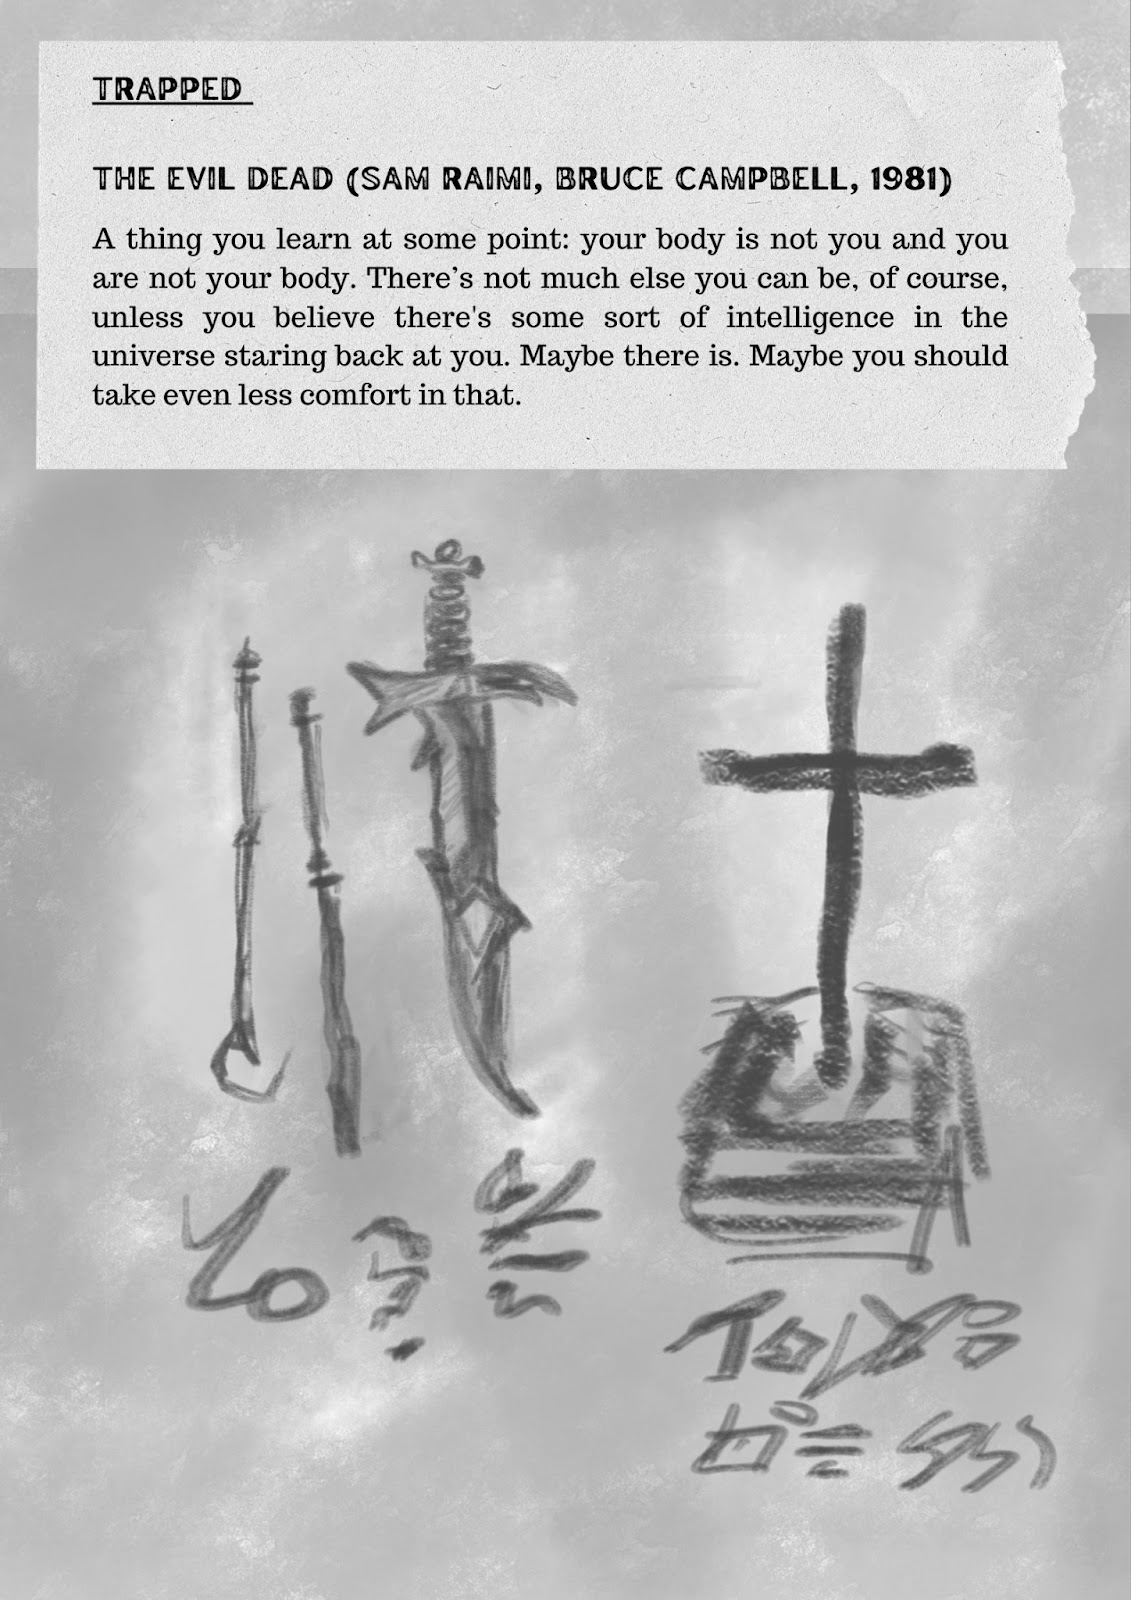 TRAPPED
THE EVIL DEAD (SAM RAIMI, BRUCE CAMPBELL, 1981)
A thing you learn at some point: your body is not you and you
are not your body. There’s not much else you can be, of course,
unless you believe there's some sort of intelligence in the
universe staring back at you. Maybe there is. Maybe you should
take even less comfort in that.